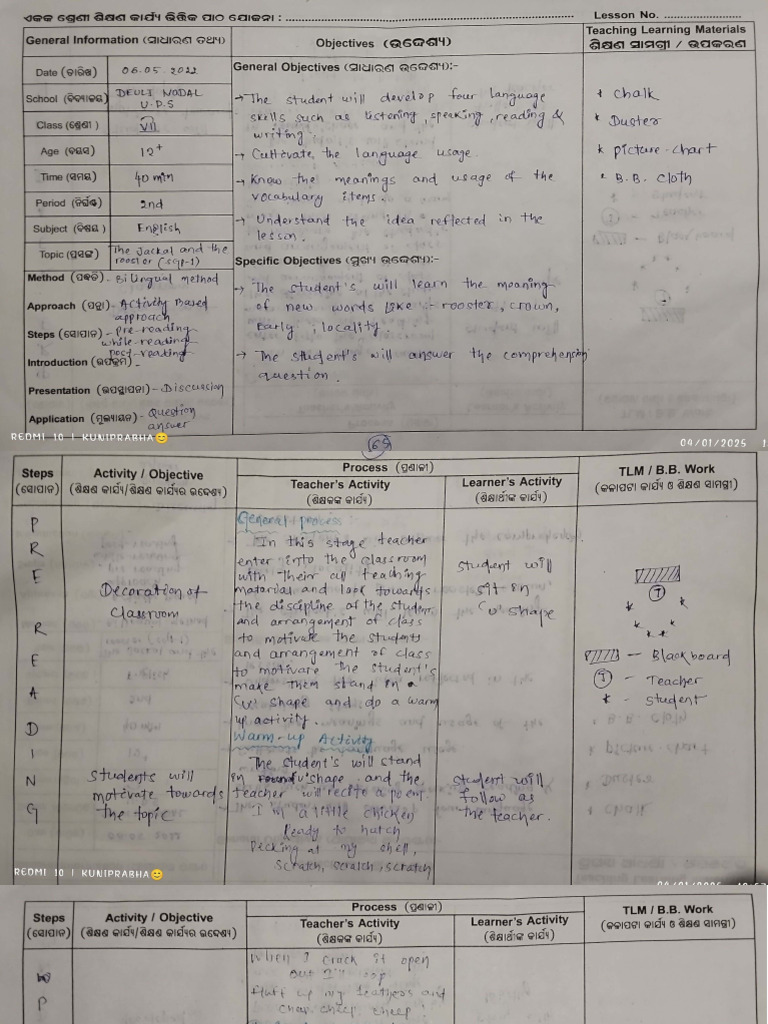 ଏକକ ଶ୍ରେଣୀ ଶିକ୍ଷଣ କାର୍ଯ୍ୟ ଭିତ୍ତିକ ପାଠ ଯୋଜନା : ........ Lesson No. ........
General Information (ସାଧାରଣ ତଥ୍ୟ)
Date (ତାରିଖ) 06.05.2022
School (ବିଦ୍ୟାଳୟ) DEULI NODAL U.P.S
Class (ଶ୍ରେଣୀ) VII
Age (ବୟସ) 12+
Time (ସମୟ) 40 min
Period (ନିର୍ଘଣ୍ଟ) 2nd
Subject (ବିଷୟ) English
Topic (ପ୍ରସଙ୍ଗ) The Jackal and the rooster (sgp-1)
Method (ପଦ୍ଧତି) - Bilingual method
Approach (ପନ୍ଥା) - Activity Based
approach
Steps (ସୋପାନ) - pre-reading
while-reading
post-reading
Introduction (ଉପକ୍ରମ) -
Presentation (ଉପସ୍ଥାପନା) - Discussion
Application (ମୂଲ୍ୟାୟନ) - Question
answer
Objectives (ଉଦ୍ଦେଶ୍ୟ)
General Objectives (ସାଧାରଣ ଉଦ୍ଦେଶ୍ୟ):-
→ The student will develop four language
skills such as listening, speaking, reading &
writing.
→ Cultivate the language usage.
→ Know the meanings and usage of the
vocabulary items.
→ Understand the idea reflected in the
lesson.
Specific Objectives (ମୁଖ୍ୟ ଉଦ୍ଦେଶ୍ୟ):-
→ The student's will learn the meaning
of new words like :- rooster, crown,
Early, locality.
→ The student's will answer the comprehension
question.
Teaching Learning Materials
ଶିକ୍ଷଣ ସାମଗ୍ରୀ / ଉପକରଣ
* chalk
* Duster
* picture-chart
* B.B. cloth
REDMI 10 | KUNIPRABHA😊
65
04/01/2025
Steps
(ସୋପାନ)
Activity / Objective
(ଶିକ୍ଷଣ କାର୍ଯ୍ୟ/ଶିକ୍ଷଣ କାର୍ଯ୍ୟର ଉଦ୍ଦେଶ୍ୟ)
Process (ପ୍ରଣାଳୀ)
Teacher's Activity
(ଶିକ୍ଷକଙ୍କ କାର୍ଯ୍ୟ)
Learner's Activity
(ଶିକ୍ଷାର୍ଥୀଙ୍କ କାର୍ଯ୍ୟ)
TLM / B.B. Work
(କଳାପଟା କାର୍ଯ୍ୟ ଓ ଶିକ୍ଷଣ ସାମଗ୍ରୀ)
P
R
E
R
E
A
D
I
N
G
Decoration of
Classroom
Students will
motivate towards
the topic
General process
In this stage teacher
enter into the classroom
with their all teaching
material and look towards
the discipline of the student
and arrangement of class
to motivate the students
and arrangement of class
to motivate the student's
make them stand in a
'U' shape and do a warm
up activity.
Warm-up Activity
The student's will stand
in 'U' shape and the
teacher will recite a poem.
I'm a little chicken
Ready to hatch
Pecking at my shell,
Scratch, scratch, scratch
student will
sit in
'U' shape
student will
follow as
the teacher.
T
— Blackboard
T - Teacher
* - student
REDMI 10 | KUNIPRABHA😊
Steps
(ସୋପାନ)
Activity / Objective
(ଶିକ୍ଷଣ କାର୍ଯ୍ୟ/ଶିକ୍ଷଣ କାର୍ଯ୍ୟର ଉଦ୍ଦେଶ୍ୟ)
Process (ପ୍ରଣାଳୀ)
Teacher's Activity
(ଶିକ୍ଷକଙ୍କ କାର୍ଯ୍ୟ)
Learner's Activity
(ଶିକ୍ଷାର୍ଥୀଙ୍କ କାର୍ଯ୍ୟ)
TLM / B.B. Work
(କଳାପଟା କାର୍ଯ୍ୟ ଓ ଶିକ୍ଷଣ ସାମଗ୍ରୀ)
P
When I crack it open
out I'll
fluff up my feathers and
cheep cheep